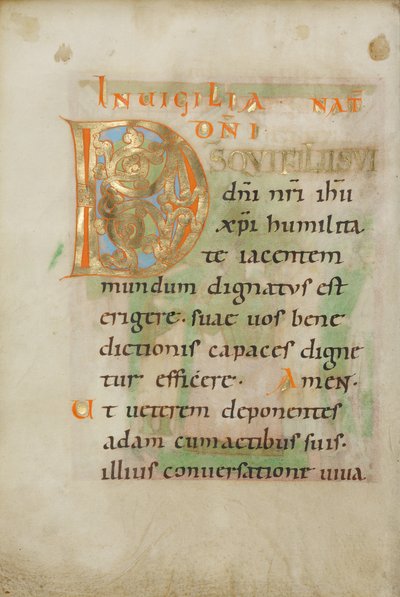 IN UIGILIA · NAT̄
DOÑI
DS QVI FILII SVI
dñi nr̃i ihũ
xp̃i humilita
te iacentem
mundum dignatvs est
erigere · suae uos bene
dictionis capaces digne
tur efficere · Amen ·
Ut ueterem deponentes
adam cum actibus suis ·
illius conuersatione uiua